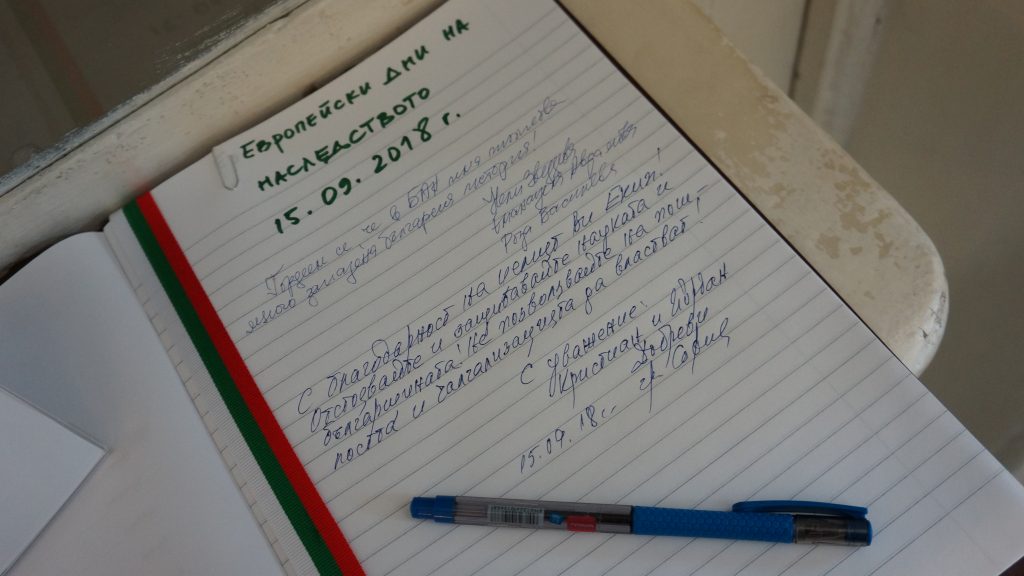 ЕВРОПЕЙСКИ ДНИ НА
НАСЛЕДСТВОТО
15.09.2018 г.
Гордеем се че в БАН има толкова
много запазена българска история!
Рада Василева
С благодарност на целият ви Екип!
Отстоявайте и защитавайте науката и
българщината! Не позволявайте на прош-
лостта и чалгализацията да властват!
С уважение:
Кристиан и Идриан
Добреви
гр. София
15.09.18 г.